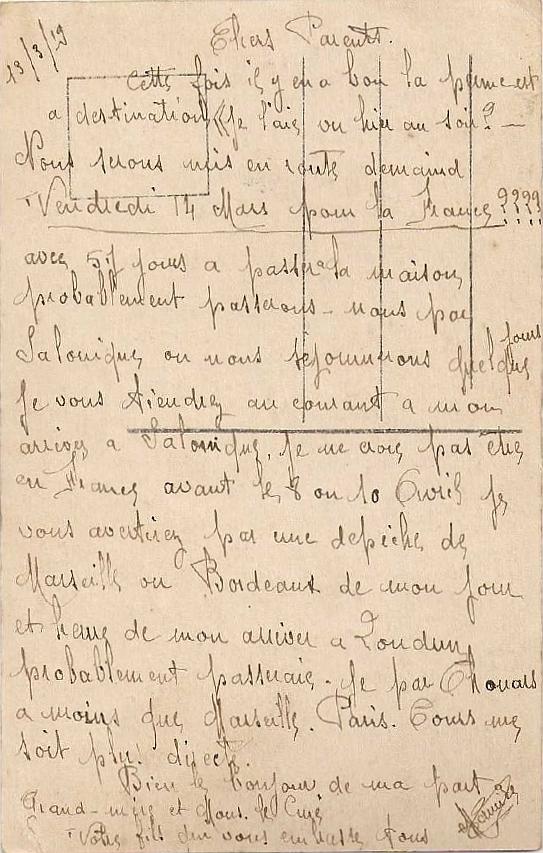 13/3/19
Chers Parents.
Cette fois il y en a bon la perme est
a destination « Je l'ais vu hier au soir ? —
Nous serons mis en route demaind
Vendredi 14 Mars pour la France ????
avec 57 jours a passer a la maison
probablement passerons-nous par
Salonique ou nous séjournerons quelque jours
Je vous tiendrez au courant a mon
arrivez a Salonique, je ne crois pas être
en France avant le 8 ou 10 Avril je
vous avertirez par une depêche de
Marseille ou Bordeaux de mon jour
et heure de mon arriver a Loudun
probablement passerais-je par Thouars
a moins que Marseille. Paris. Tours me
soit plus directe.
Bien le bonjour de ma part
Grand-mère et Mons. le Curé
Votre fils qui vous embrasse tous